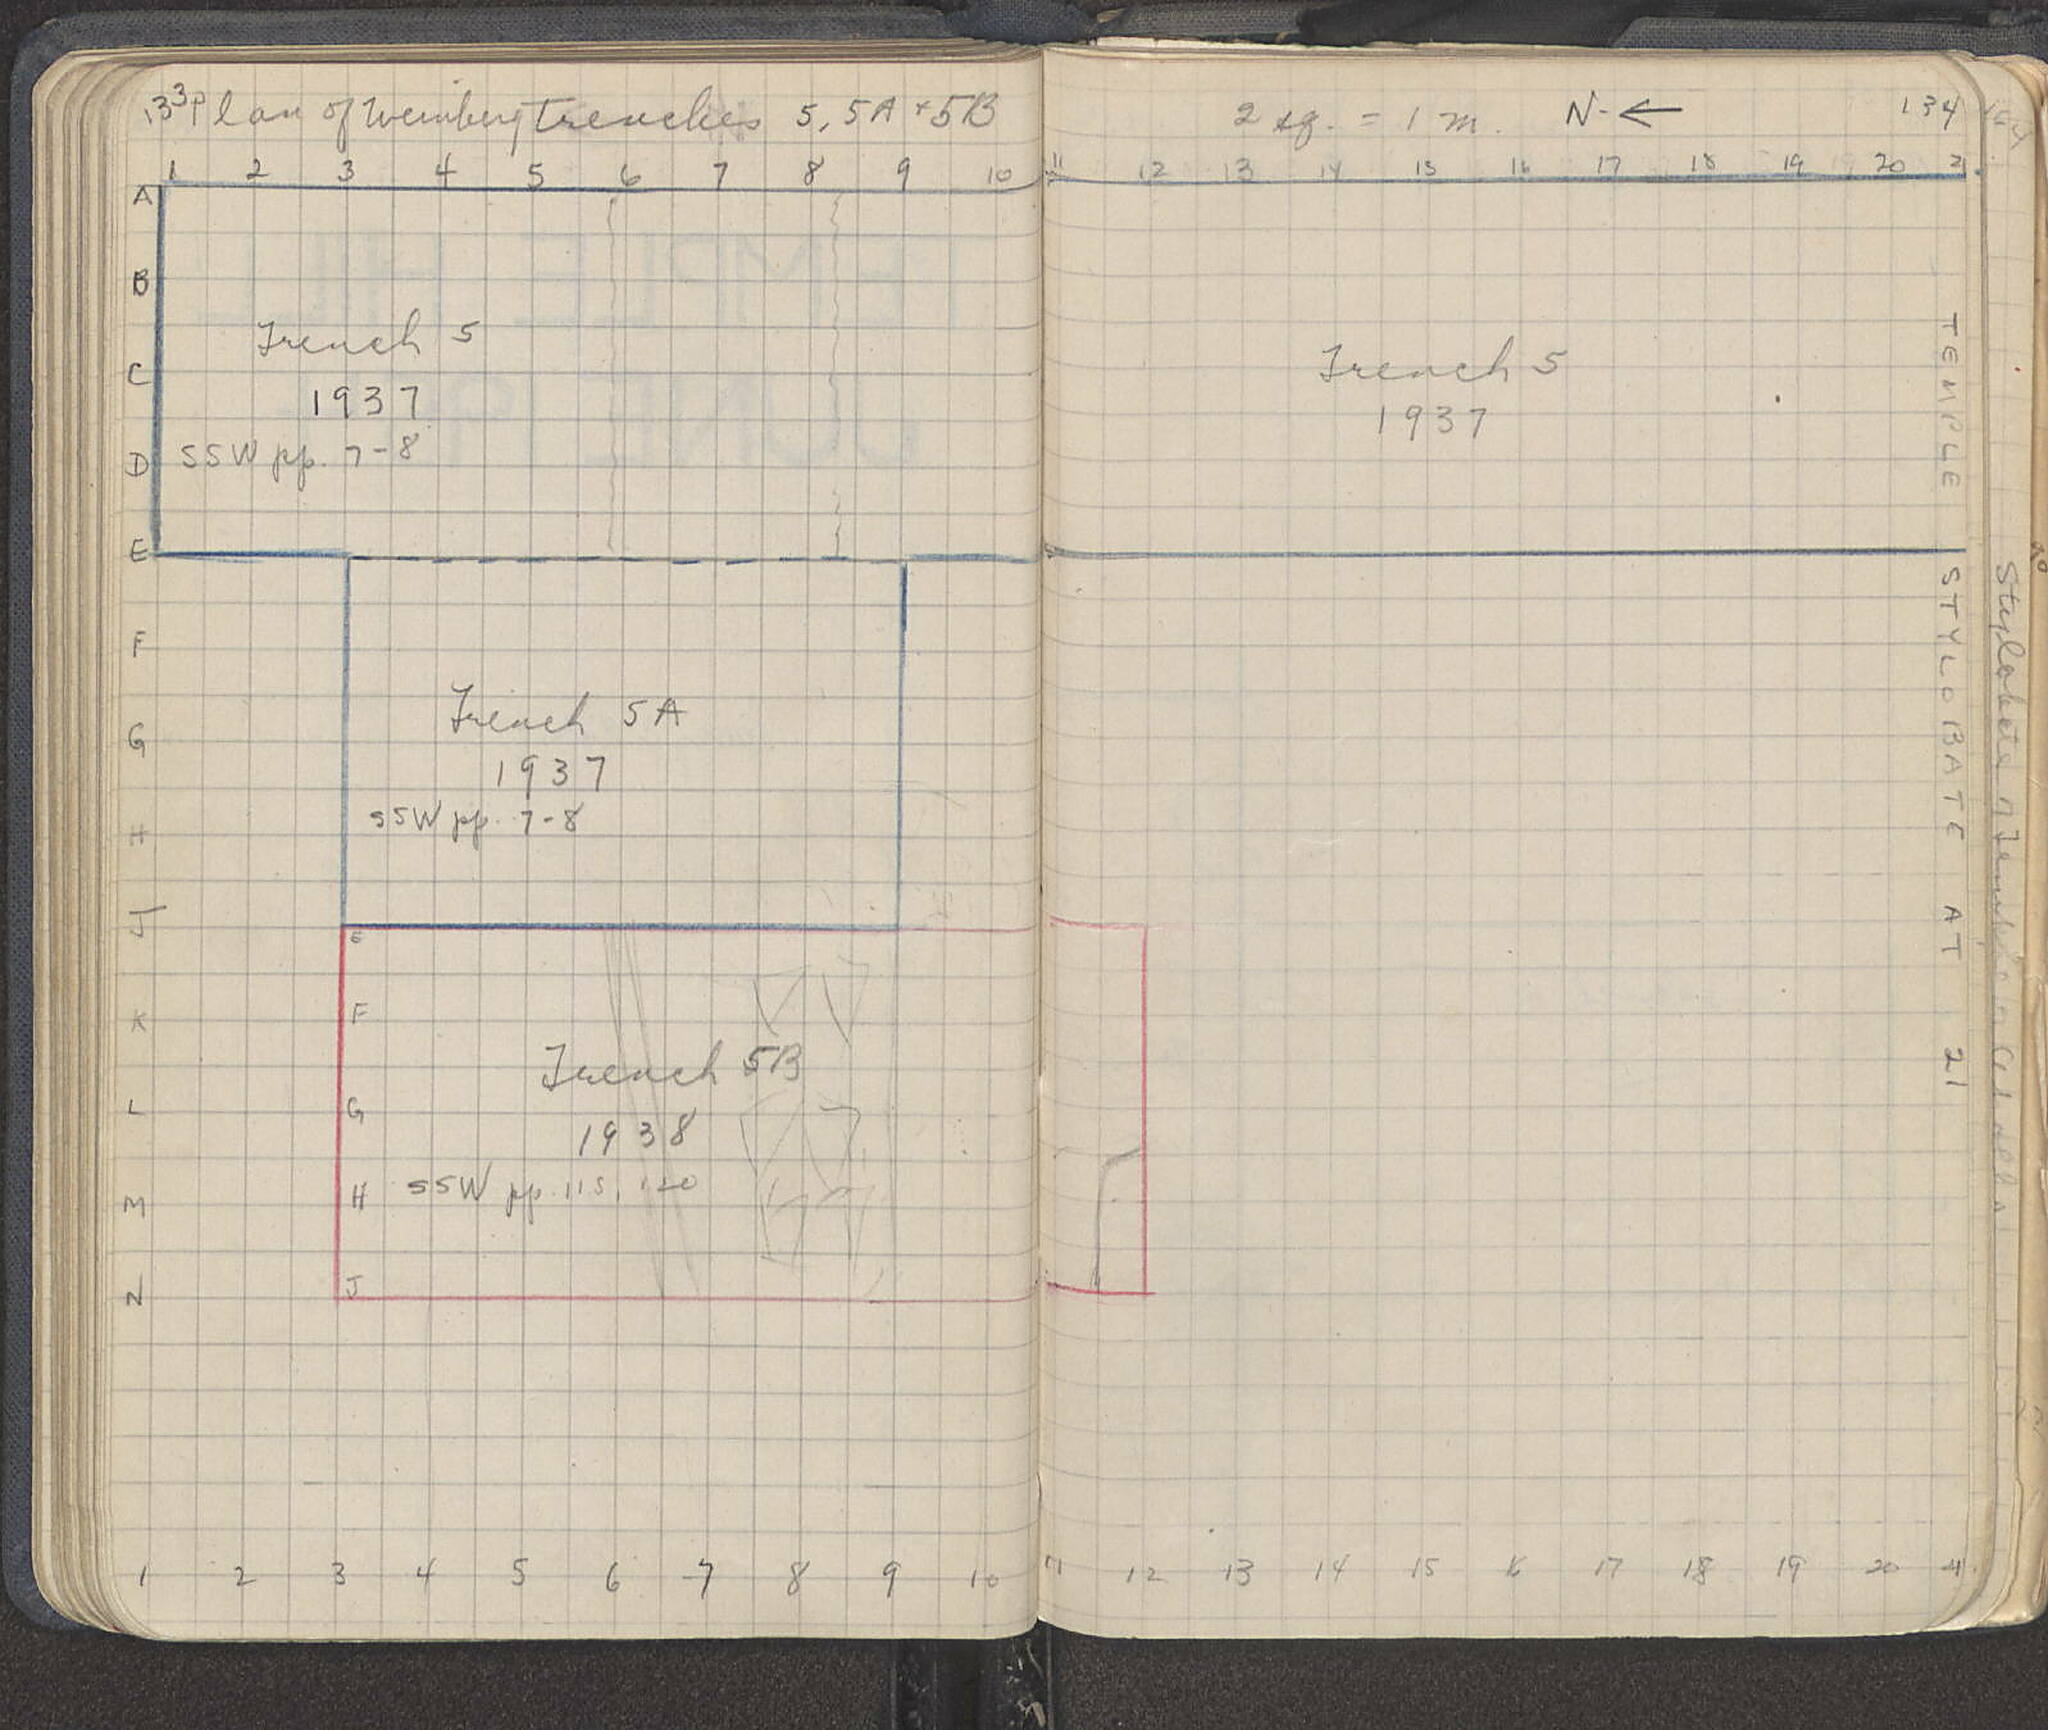 133 Plan of Weinberg trenches 5, 5A + 5B
1 2 3 4 5 6 7 8 9 10
A
B
Trench 5
C
1937
D SSW pp. 7-8
E
F
Trench 5A
G
1937
SSW pp. 7-8
H
J
E
K F
Trench 5B
L G
1938
M H SSW pp. 115, 120
N J
1 2 3 4 5 6 7 8 9 10
2 sq. = 1 m. N ← 134
11 12 13 14 15 16 17 18 19 20 21
Trench 5
1937
TEMPLE STYLOBATE AT 21
11 12 13 14 15 16 17 18 19 20 21
Stylobate